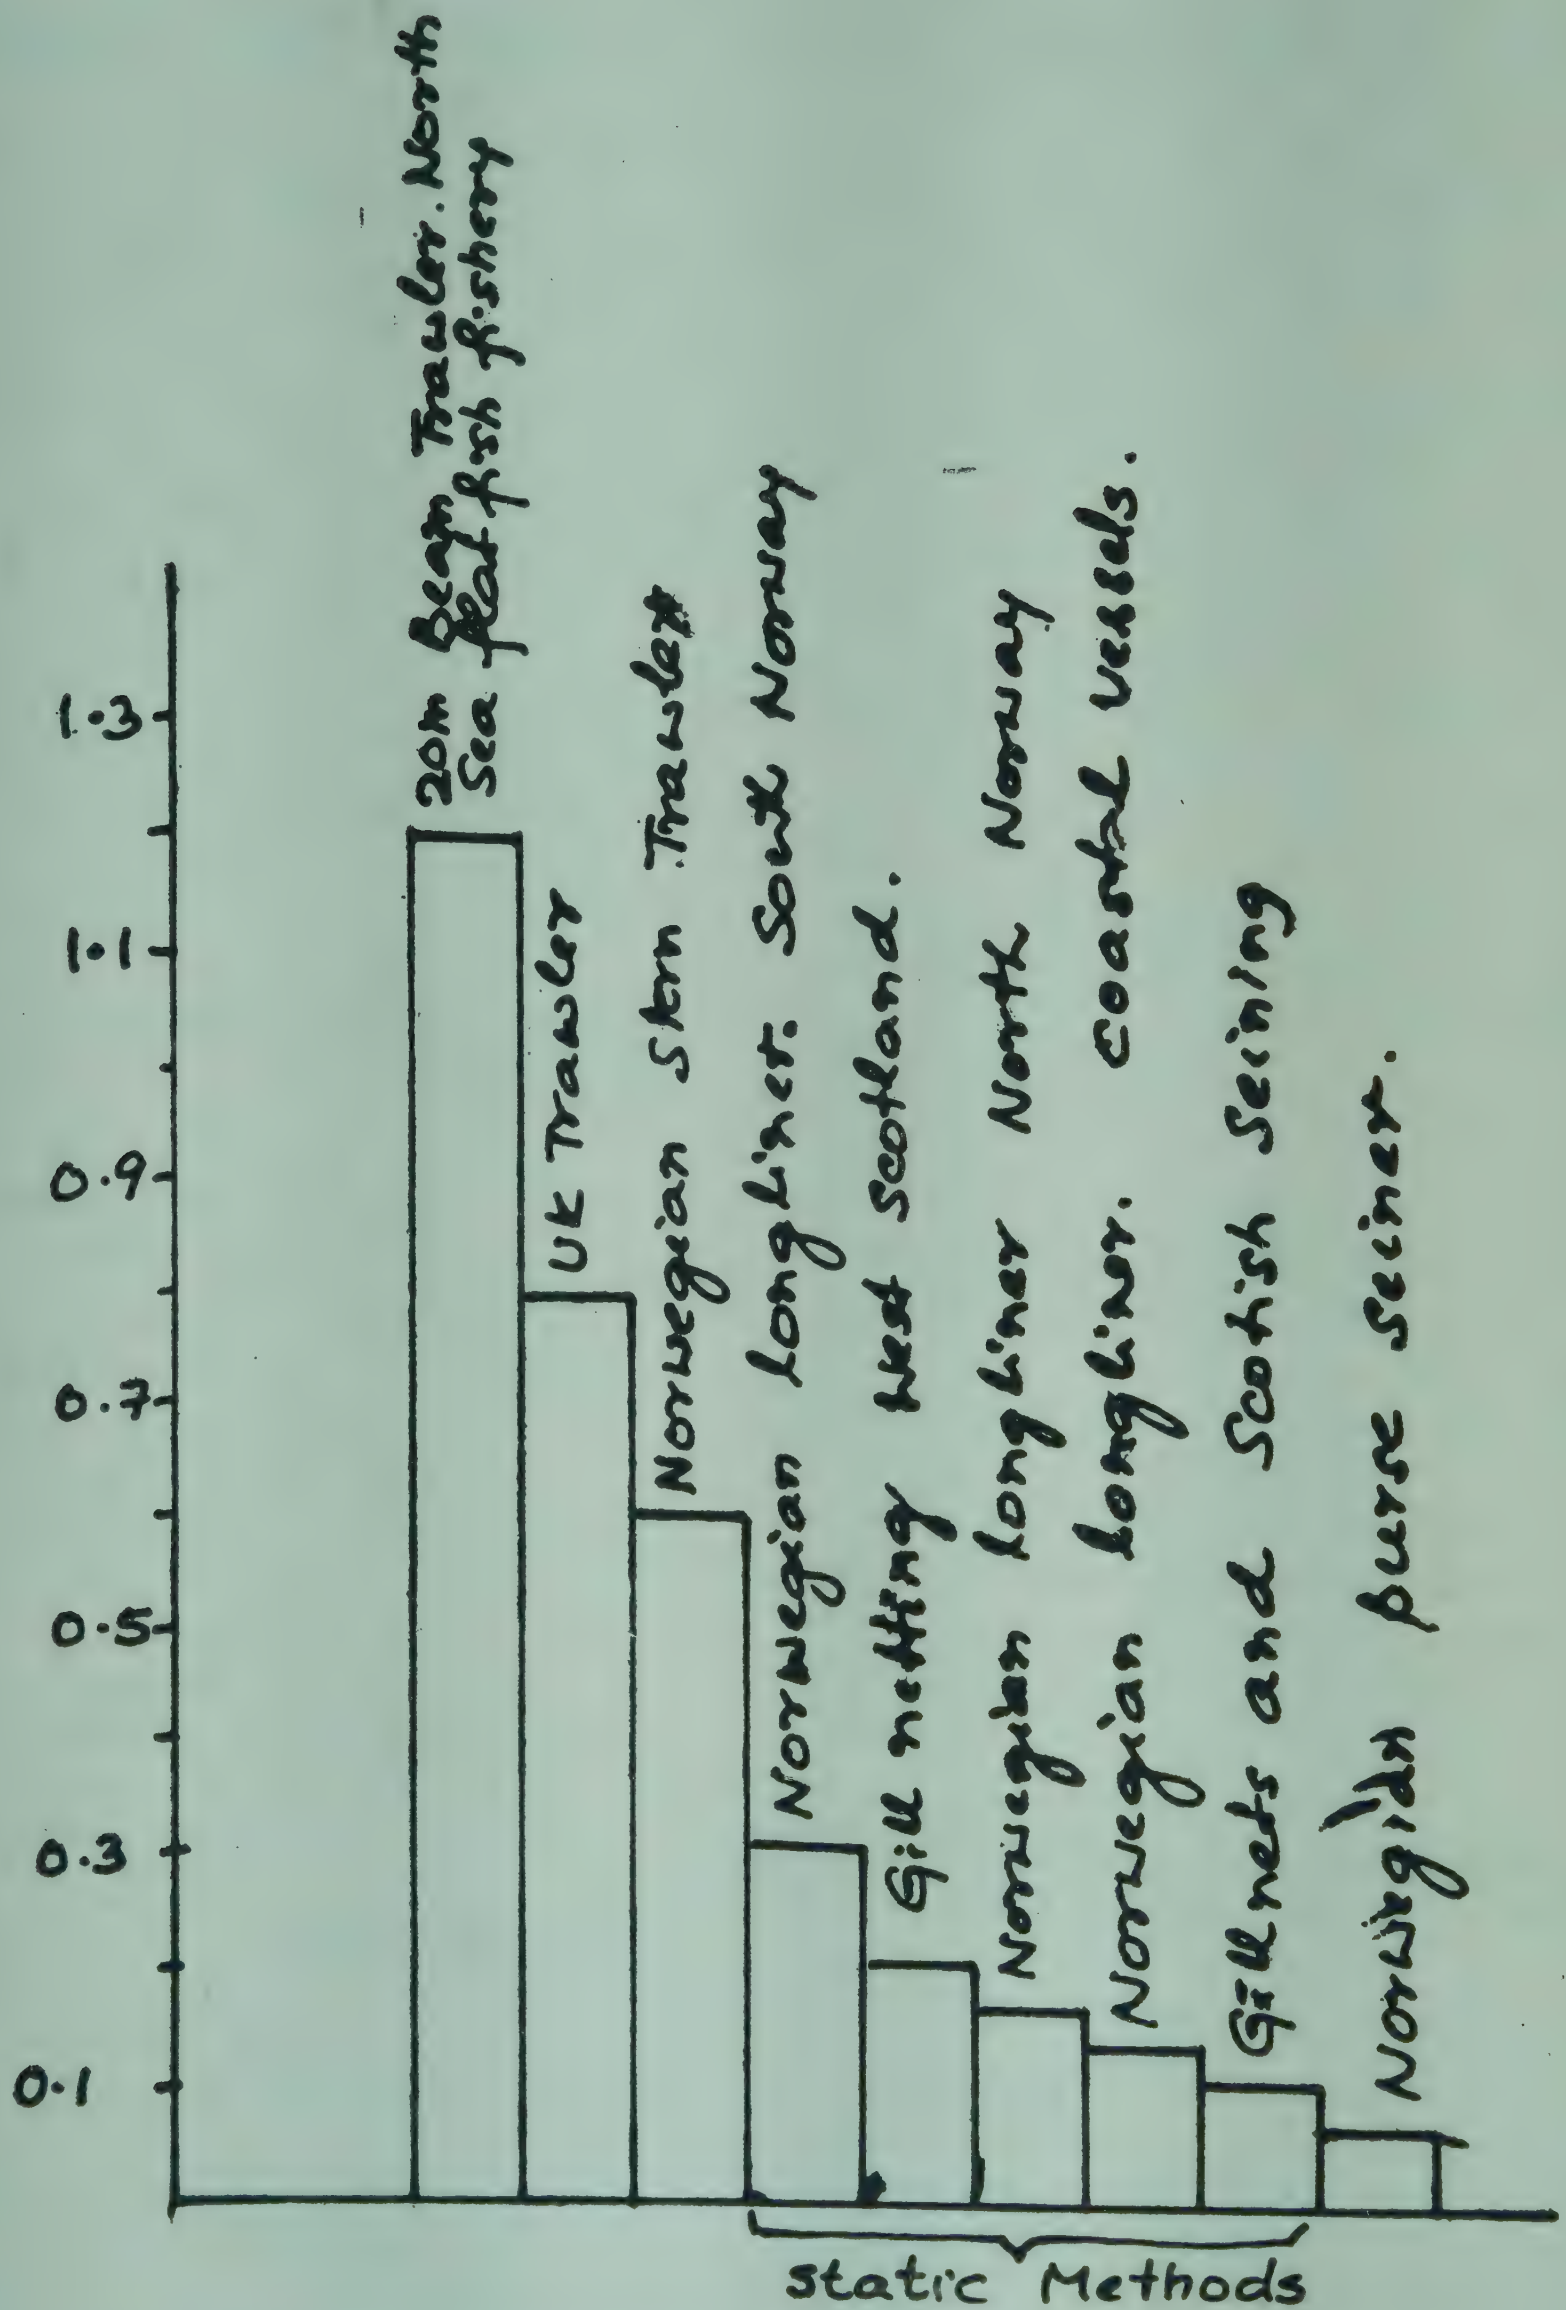 1.3
1.1
0.9
0.7
0.5
0.3
0.1
20m Beam Trawler. North
Sea flat fish fishery
UK Trawler
Norwegian Stern Trawler
Norwegian longliner. South Norway
Gill netting west scotland.
Norwegian longliner North Norway
Norwegian longliner. coastal vessels.
Gillnets and Scotish Seining
Norwegian purse seiner.
static Methods